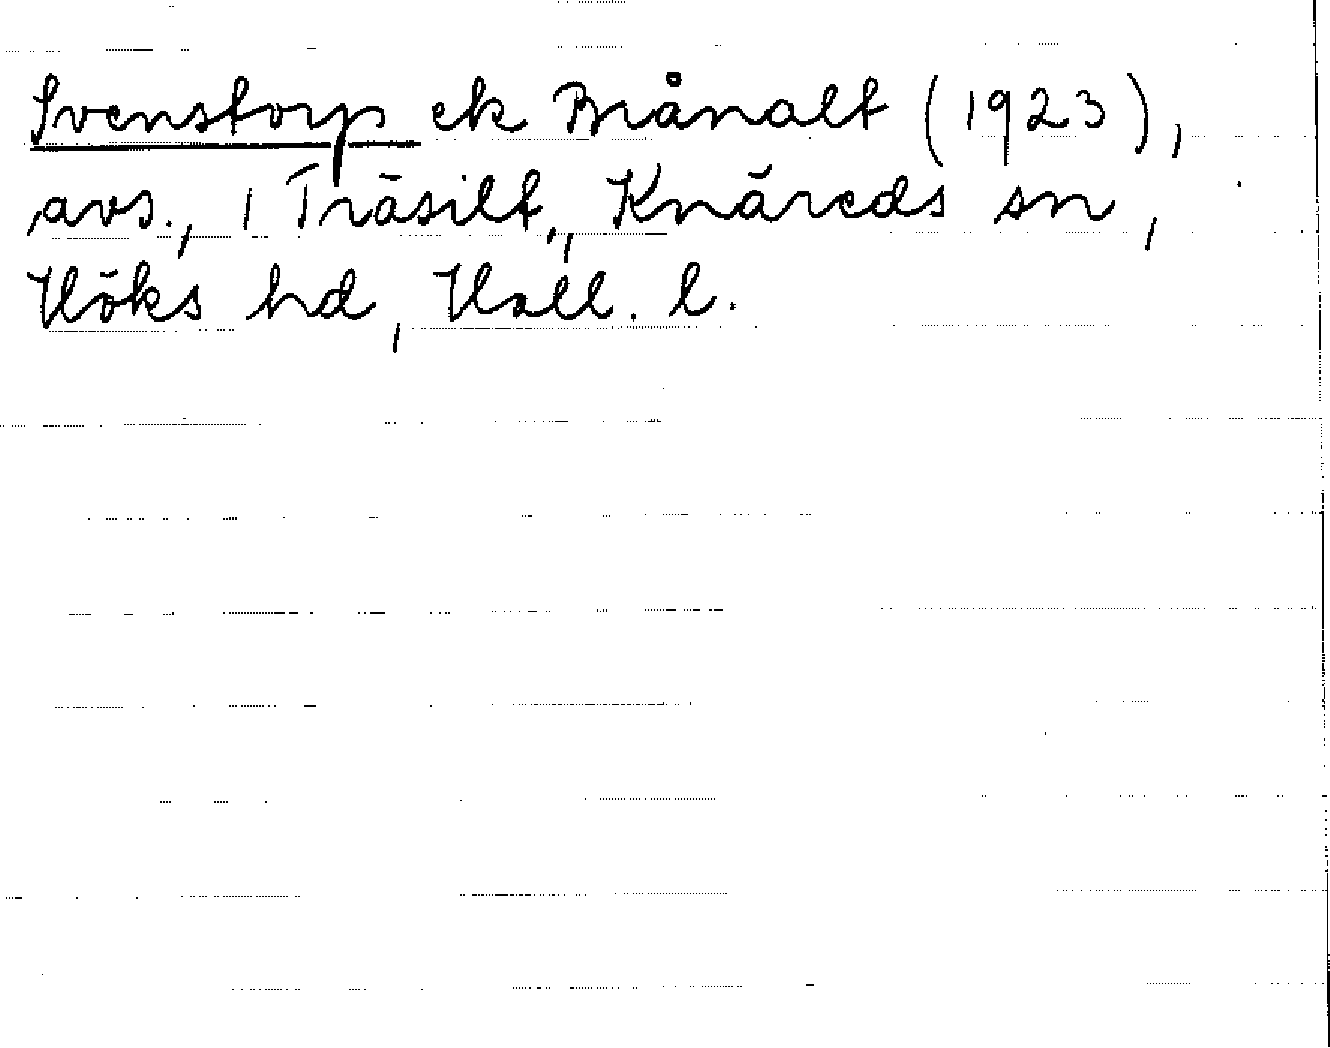 Svenstorp ek Brånalt (1923),
avs., i Träsilt., Knäreds sn,
Höks hd, Hall. l.